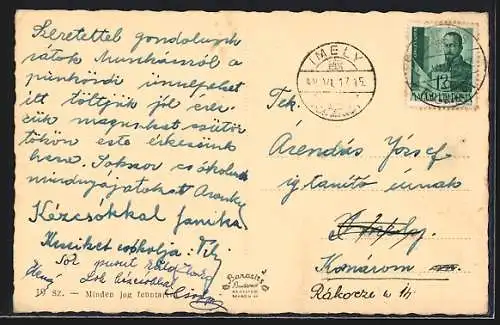 Szeretettel gondolunk
rátok Munkácsról a
pünkösdi ünnepeket
itt töltjük jól érez-
zük magunkat csütör
tökön este érkezünk
haza. Sokszor csókolunk
mindnyájatokat Aranka
Kézcsókkal Janika
Kezeiket csókolja:
Sok puszit
Sok
19 sz. — Minden jog fenntartva
Barasits
IMELY
17 15
12
MAGYAR POSTA
Tek.
Árendás József
ig tanító úrnak
Imely
Komárom m.
Rákóczi u 14